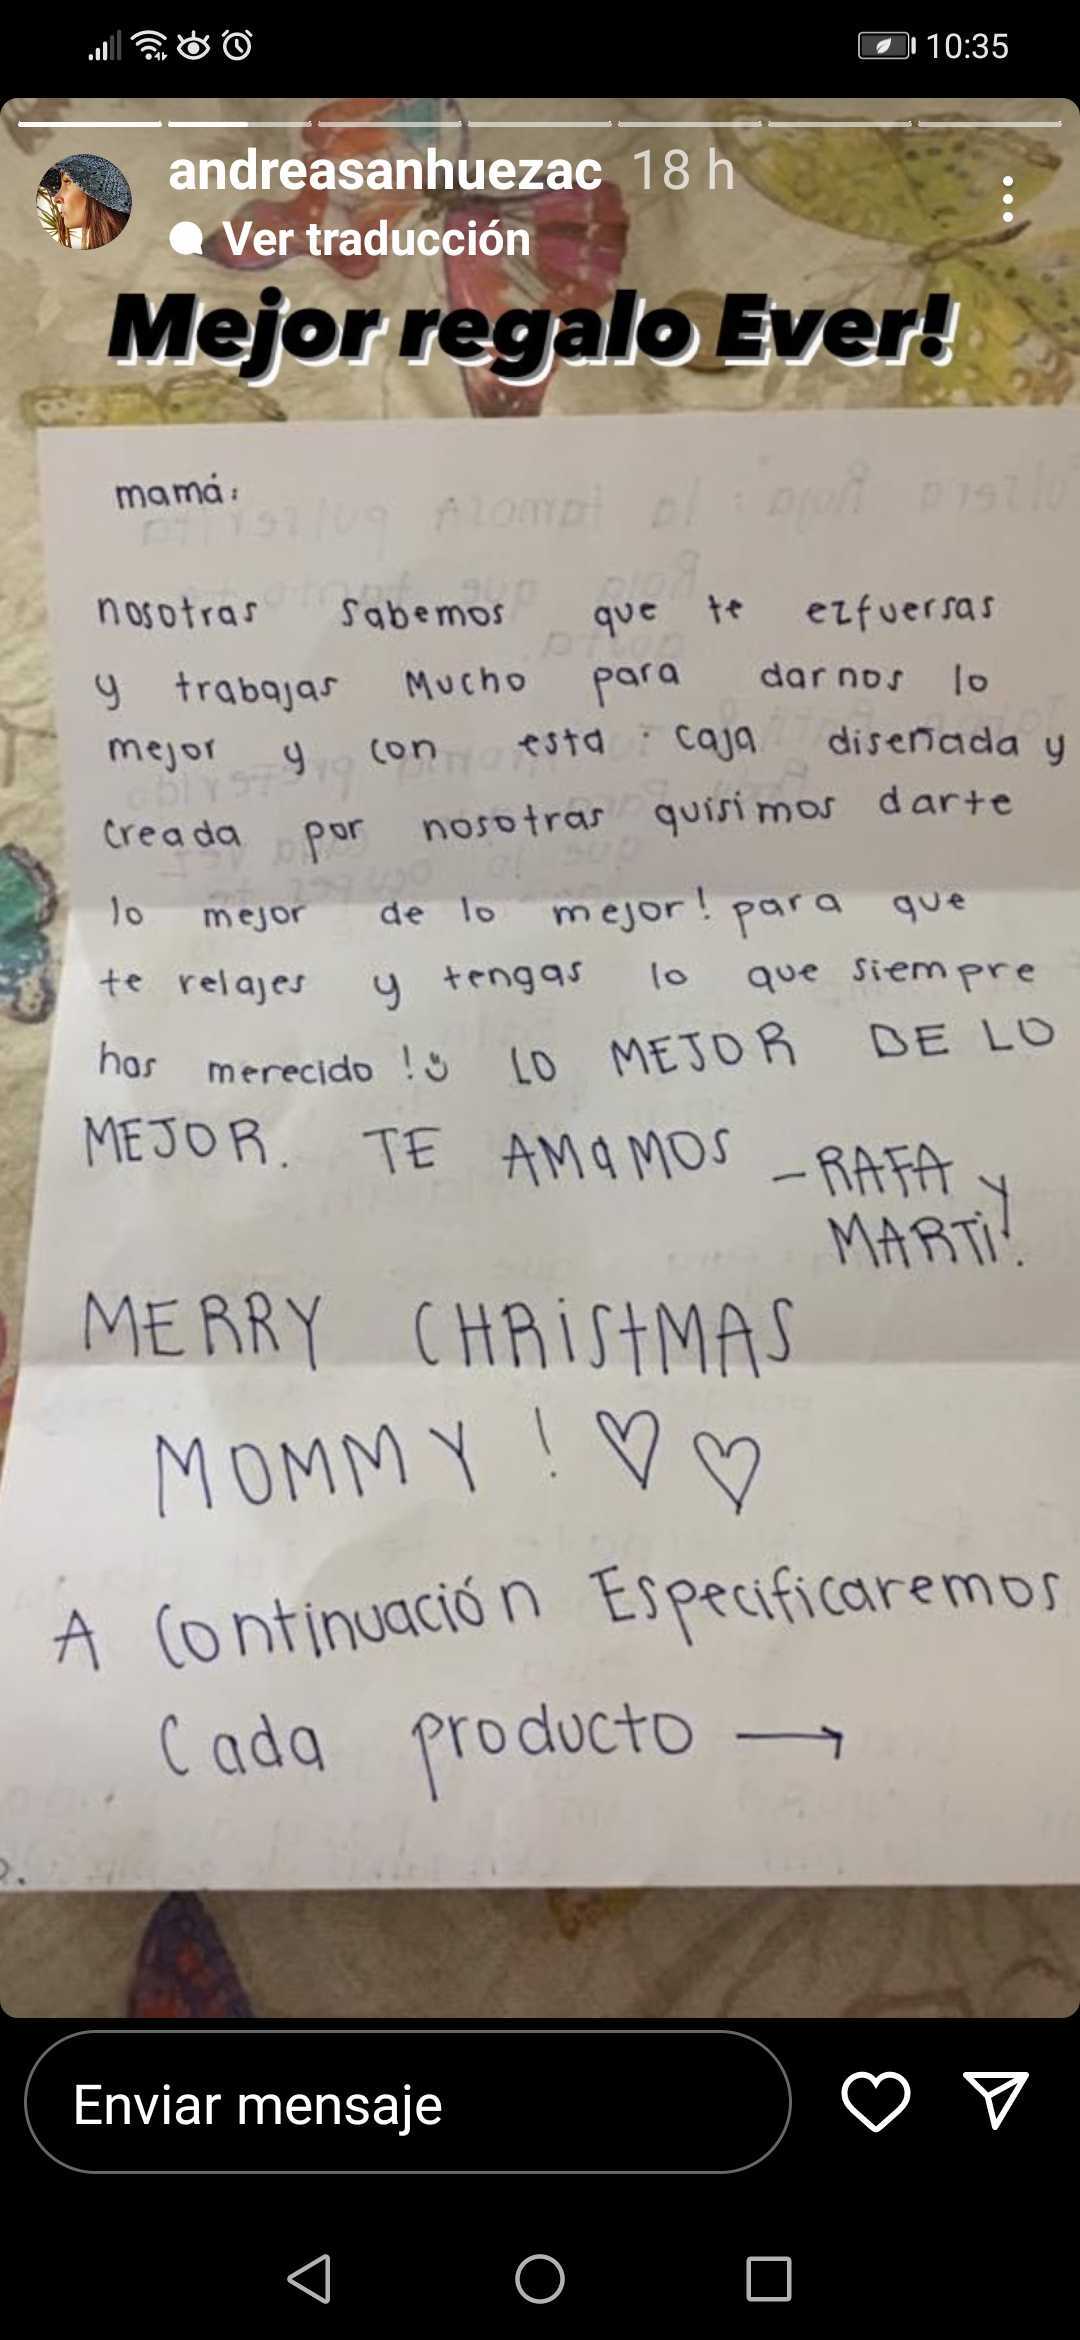 10:35
andreasanhuezac 18 h
Ver traducción
Mejor regalo Ever!
mamá:
nosotras sabemos que te ezfuersas
y trabajas Mucho para darnos lo
mejor y con esta caja diseñada y
creada por nosotras quisimos darte
lo mejor de lo mejor! para que
te relajes y tengas lo que siempre
has merecido! LO MEJOR DE LO
MEJOR. TE AMaMOS -RAFA y
MARTi!.
MERRY CHRiStMAS
MOMMY! ♡ ♡
A Continuación Especificaremos
Cada producto →
Enviar mensaje